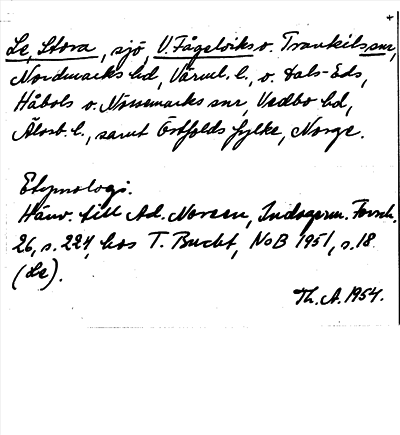 Le, Stora, sjö, V. Fågelviks o. Trankils snr,
Nordmarks hd, Värml. l., o. Dals-Eds,
Håbols o. Nössemarks snr, Vedbo hd,
Älvsb. l., samt Östfolds fylke, Norge.
Etymologi.
Hänv. till Ad. Noreen, Indogerm. Forsch.
26, s. 224, hos T. Bucht, NoB 1951, s. 18.
(Le).
Th. A. 1954.